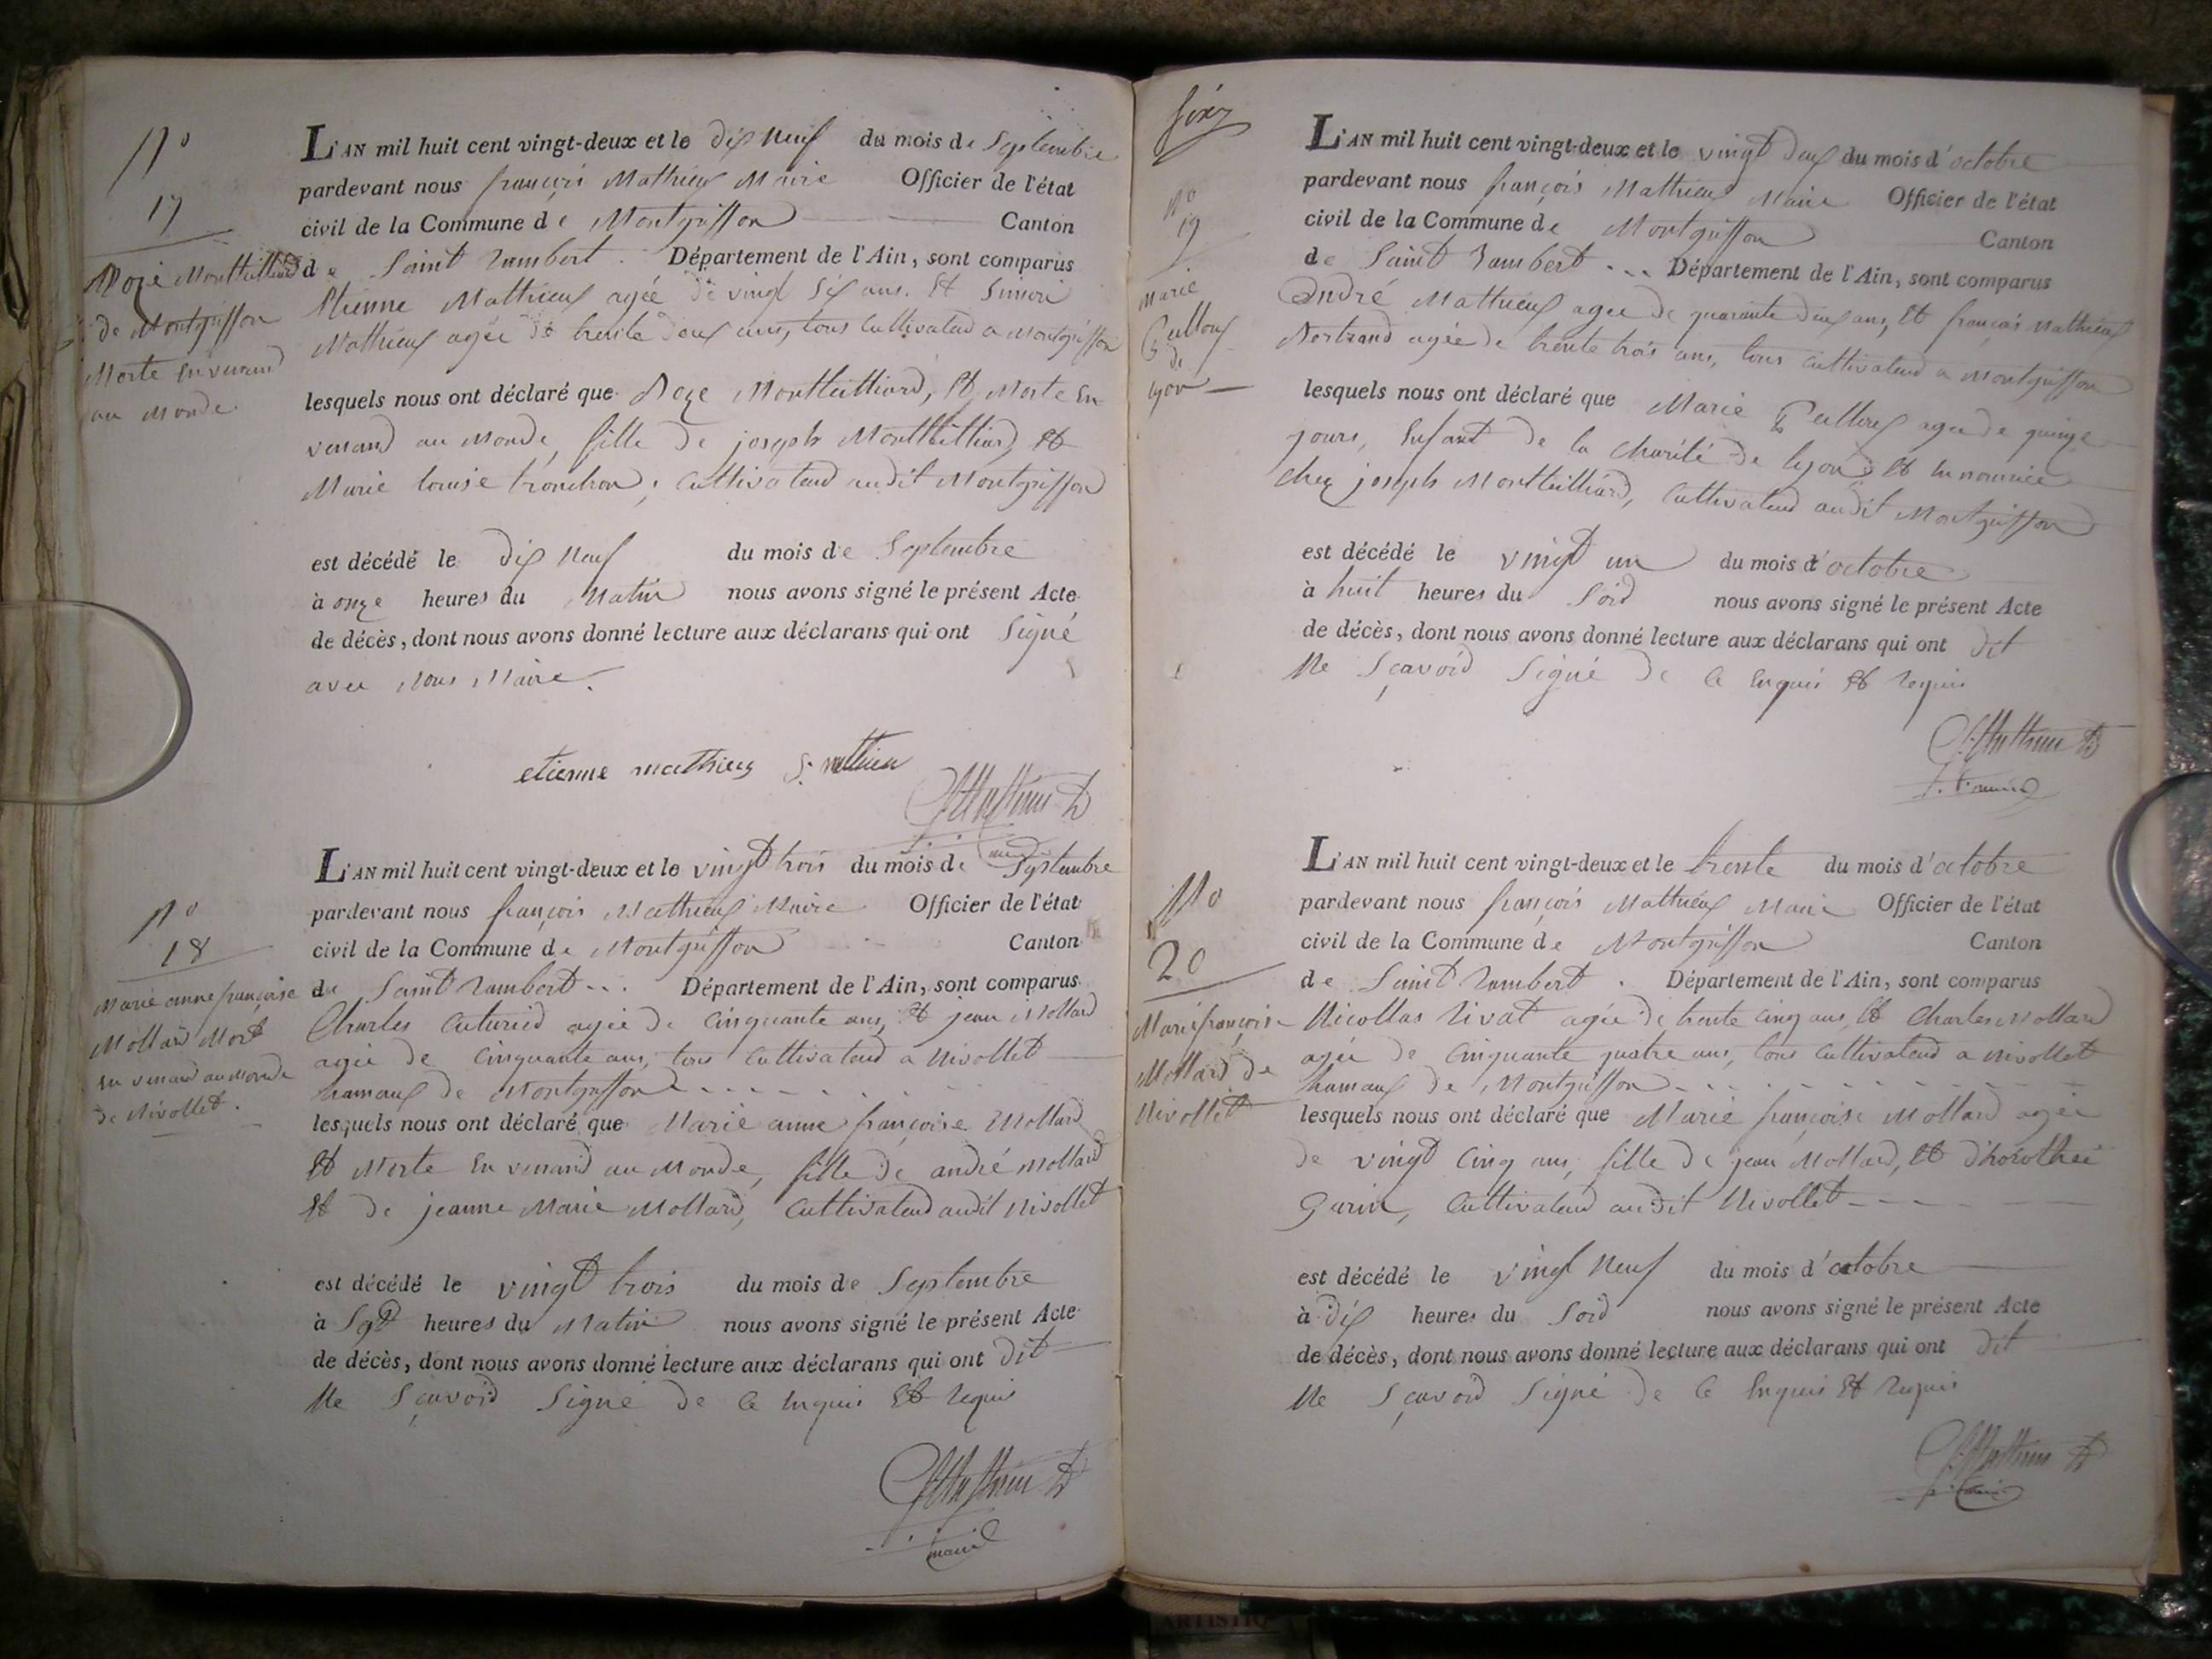 N°
17
Roze Montteilliard
de Montgriffon
Morte en venand
au Monde.
L'AN mil huit cent vingt-deux et le dix neuf du mois de Septembre
pardevant nous françois Mathieux Maire Officier de l'état
civil de la Commune de Montgriffon Canton
de Saint Rambert. Département de l'Ain, sont comparus
Etienne Mathieux agée de vingt six ans. Et Simon
Mathieux agée de trente deux ans, tous Cultivateud a Montgriffon
lesquels nous ont déclaré que Roze Montteilliard, Et Morte En
venand au Monde, fille de joseph Montteilliard Et
Marie louise tronchon, Cultivateud audit Montgriffon
est décédé le dix neuf du mois de Septembre
à onze heures du Matin nous avons signé le présent Acte
de décès, dont nous avons donné lecture aux déclarans qui ont Signé
avec Nous Maire.
etienne mathieux S. mathieu
maire
N°
18
Marie anne françoise
Mollard Mort
En venand au Monde
de Nivollet.
L'AN mil huit cent vingt-deux et le vingt trois du mois de Septembre
pardevant nous françois Mathieux Maire Officier de l'état
civil de la Commune de Montgriffon Canton
de Saint Rambert... Département de l'Ain, sont comparus
Charles agée de Cinquante ans, Et jean Mollard
agée de Cinquante ans, tous Cultivateud a Nivollet
hamaux de Montgriffon
lesquels nous ont déclaré que Marie anne françoise Mollard
Et Morte En venand au Monde, fille de andré mollard
Et de jeanne Marie Mollard, Cultivateud audit Nivollet
est décédé le vingt trois du mois de Septembre
à Sept heures du Matin nous avons signé le présent Acte
de décès, dont nous avons donné lecture aux déclarans qui ont dit
Ne Sçavoid Signé de Ce Enquis Et Requis
maire
N°
19
Marie
de
lyon
L'AN mil huit cent vingt-deux et le vingt deux du mois d'octobre
pardevant nous françois Mathieux Maire Officier de l'état
civil de la Commune de Montgriffon Canton
de Saint Rambert... Département de l'Ain, sont comparus
André Mathieux agee de quarante deux ans, Et françois Mathieux
Bertrand agée de trente trois ans, tous Cultivateud a Montgriffon
lesquels nous ont déclaré que Marie agee de quinze
jours, Enfant de la Charité de lyon Et En nourrice
Chez joseph Montteilliard, Cultivateud audit Montgriffon
est décédé le vingt un du mois d'octobre
à huit heures du Soid nous avons signé le présent Acte
de décès, dont nous avons donné lecture aux déclarans qui ont dit
Ne Sçavoid Signé de Ce Enquis Et Requis
N°
20
Marie françoise
Mollard de
Nivollet
L'AN mil huit cent vingt-deux et le trente du mois d'octobre
pardevant nous françois Mathieux Maire Officier de l'état
civil de la Commune de Montgriffon Canton
de Saint Rambert. Département de l'Ain, sont comparus
Nicollas Rivat agée de trente Cinq ans, Et Charles Mollard
agée de Cinquante quatre ans, tous Cultivateud a Nivollet
hamaux de Montgriffon
lesquels nous ont déclaré que Marie françoise Mollard agée
de vingt Cinq ans, fille de jean Mollard, Et d'horothée
Gurin, Cultivateud audit Nivollet
est décédé le vingt Neuf du mois d'octobre
à dix heures du Soid nous avons signé le présent Acte
de décès, dont nous avons donné lecture aux déclarans qui ont dit
Ne Sçavoid Signé de Ce Enquis Et Requis
ARTISTIQ